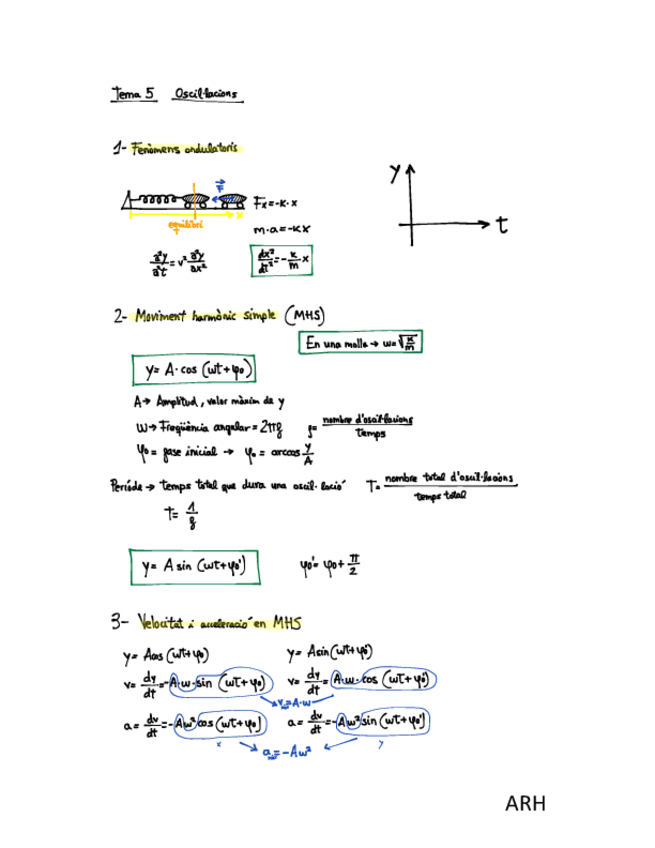 Tema 5 Oscil·lacions
1- Fenòmens ondulatoris
F
Fx=-k·x
x
equilibri
m·a=-kx
y
t
∂²y/∂²t = v² ∂²y/∂x²
dx²/dt² = -k/m·x
2- Moviment harmònic simple (MHS)
En una molla → ω=√k/m
y= A·cos (ωt+φ₀)
A→ Amplitud, valor màxim de y
ω→ Freqüència angular = 2πf
f= nombre d'oscil·lacions/temps
φ₀= fase inicial → φ₀= arccos y/A
Període → temps total que dura una oscil·lació
T= nombre total d'oscil·lacions/temps total
T= 1/f
y= A sin (ωt+φ₀')
φ₀'= φ₀+ π/2
3- Velocitat i acceleració en MHS
y= Acos (ωt+φ₀)
y= Asin (ωt+φ₀')
v= dy/dt =-A·ω·sin (ωt+φ₀)
v= dy/dt = A·ω·cos (ωt+φ₀')
vmàx=A·ω
a= dv/dt =-Aω²cos (ωt+φ₀)
a= dv/dt =-Aω²sin (ωt+φ₀')
x
y
amàx=-Aω²
ARH